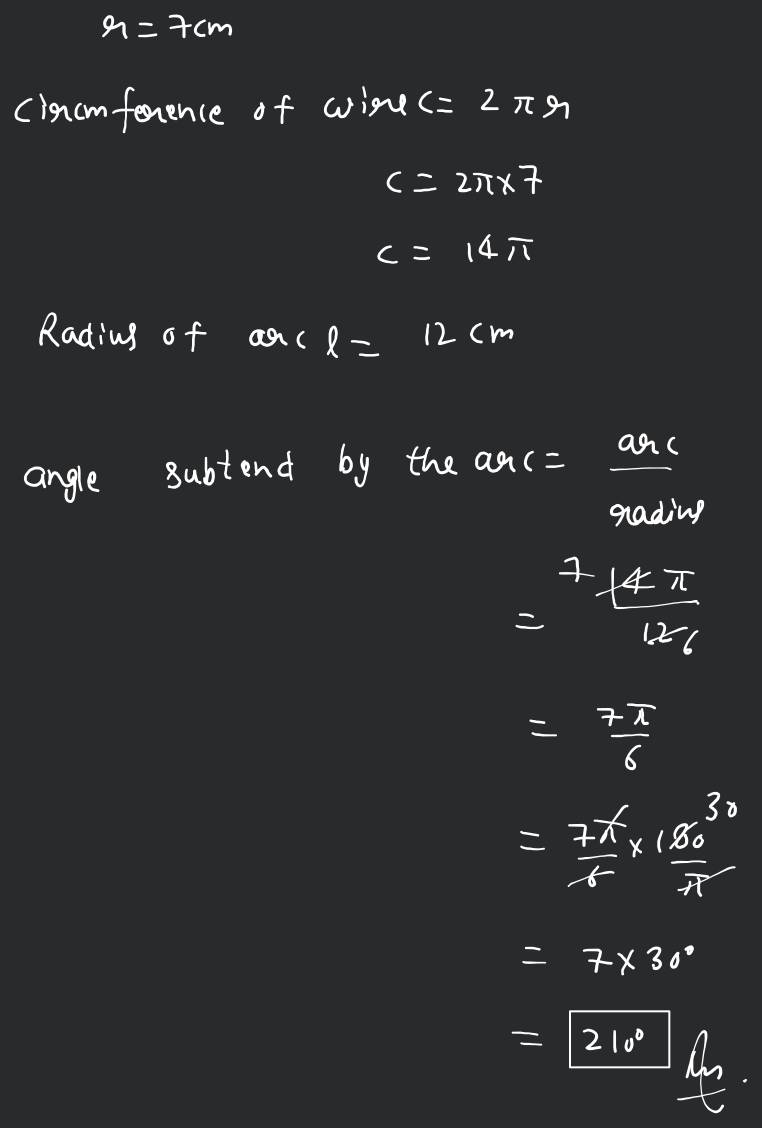 r = 7cm
Circmference of wire C = 2πr
C = 2π×7
C = 14π
Radius of arc l = 12 cm
angle subtend by the arc = arc
radius
= 7 14π
12 6
= 7π
6
= 7π × 180 30
6 π
= 7×30°
= 210° Ans.